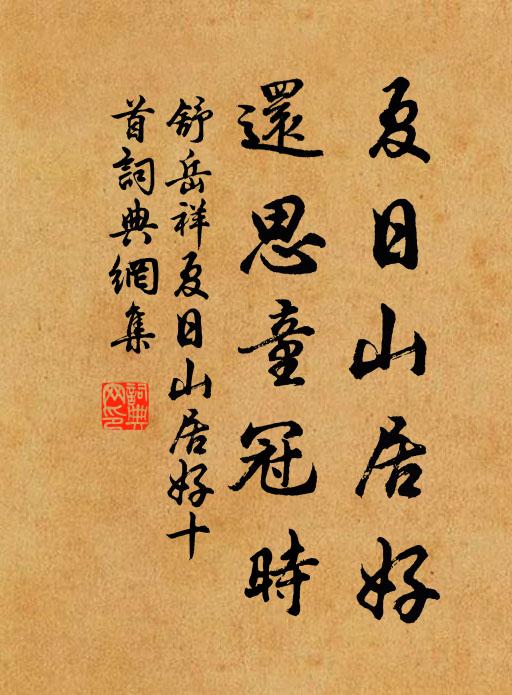 夏日山居好
還思童冠時
舒岳祥夏日山居好十
首詞典網集
詞典
网印